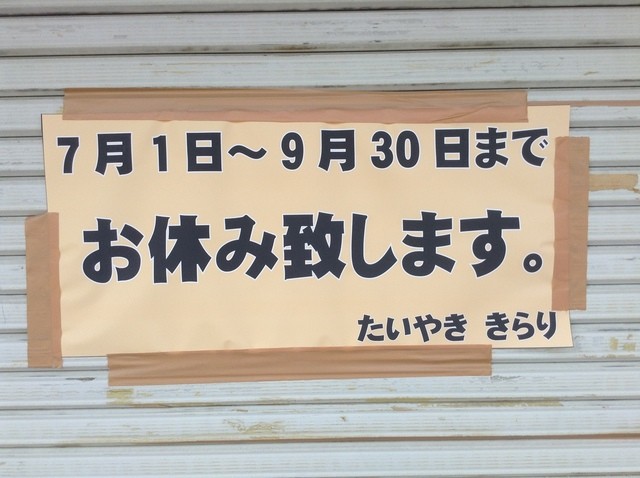 7月1日～9月30日まで
お休み致します。
たいやき きらり